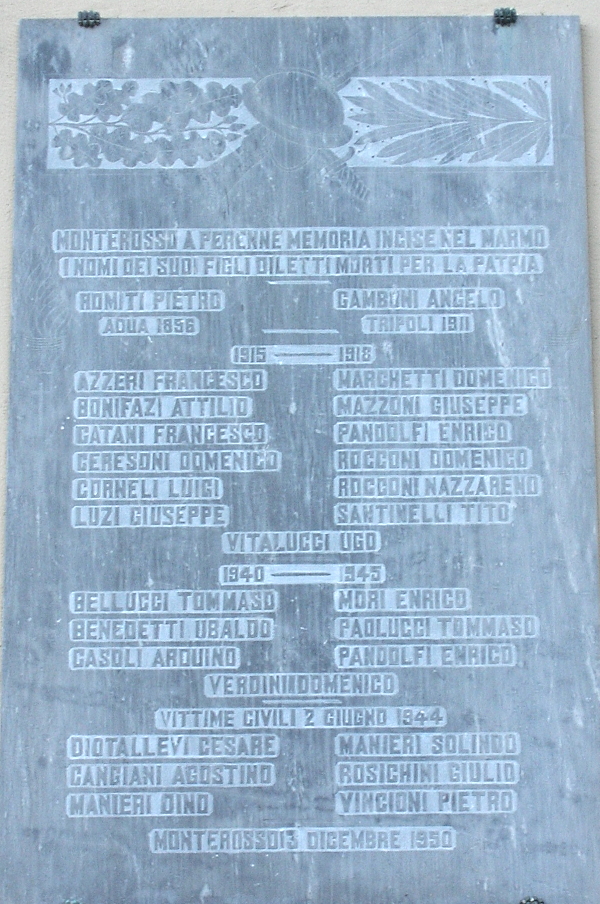 MONTEROSSO A PERENNE MEMORIA INCISE NEL MARMO
I NOMI DEI SUOI FIGLI DILETTI MORTI PER LA PATRIA
ROMITI PIETRO GAMBONI ANGELO
ADUA 1856 TRIPOLI 1911
1915 — 1918
AZZERI FRANCESCO MARCHETTI DOMENICO
BONIFAZI ATTILIO MAZZONI GIUSEPPE
CATANI FRANCESCO PANDOLFI ENRICO
CERESONI DOMENICO ROCCONI DOMENICO
CORNELI LUIGI ROCCONI NAZZARENO
LUZI GIUSEPPE SANTINELLI TITO
VITALUCCI UGO
1940 — 1945
BELLUCCI TOMMASO MORI ENRICO
BENEDETTI UBALDO PAOLUCCI TOMMASO
CASOLI ARDUINO PANDOLFI ENRICO
VERDINI DOMENICO
VITTIME CIVILI 2 GIUGNO 1944
DIOTALLEVI CESARE MANIERI SOLINDO
CANCIANI AGOSTINO ROSICHINI GIULIO
MANIERI DINO VINCIONI PIETRO
MONTEROSSO 13 DICEMBRE 1950